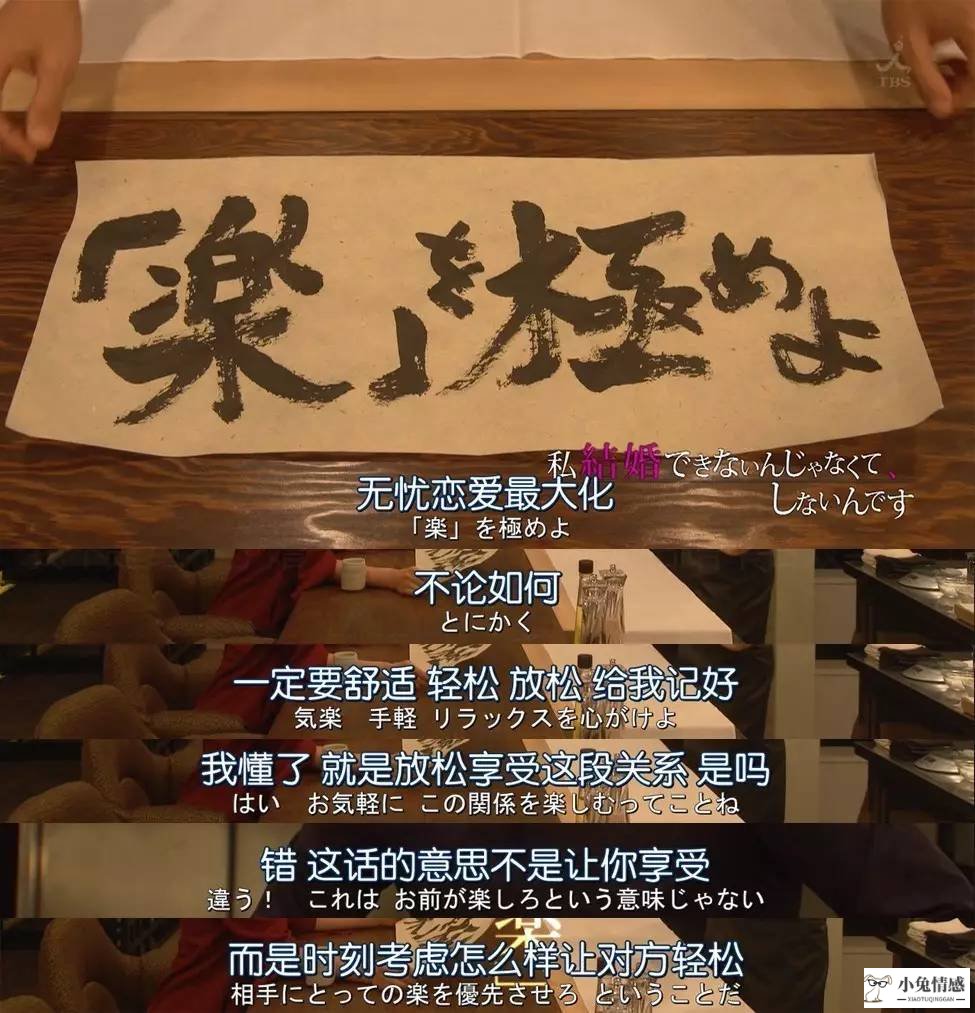 TBS
「楽」を極めよ
私結婚できないんじゃなくて、
しないんです
无忧恋爱最大化
「楽」を極めよ
不论如何
とにかく
一定要舒适 轻松 放松 给我记好
気楽 手軽 リラックスを心がけよ
我懂了 就是放松享受这段关系 是吗
はい お気軽に この関係を楽しむってことね
错 这话的意思不是让你享受
違う！ これは お前が楽しろという意味じゃない
楽
而是时刻考虑怎么样让对方轻松
相手にとっての楽を優先させろ ということだ
小兔情感
XIAOTUQINGGAN